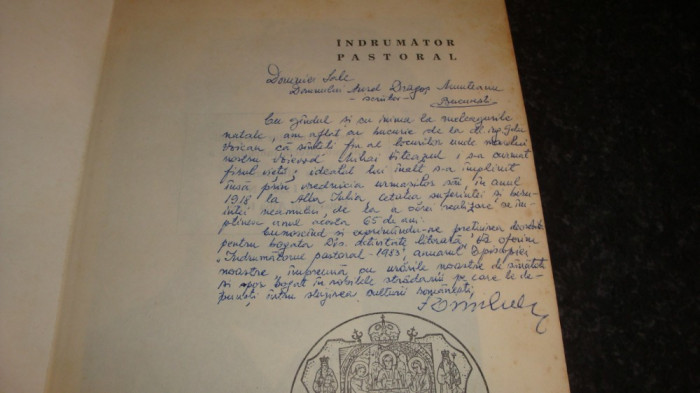 ÎNDRUMĂTOR
PASTORAL
Domniei Sale
Domnului Aurel Dragoș Munteanu
- scriitor -
București
Cu gîndul și cu inima la meleagurile
natale, am aflat cu bucurie de la dl. ing. Gelu
Voican că sînteți fiu al locurilor unde marelui
nostru Voievod Mihai Viteazul i s-a curmat
firul vieții; idealul lui înalt s-a împlinit
însă prin vrednicia urmașilor săi, în anul
1918 la Alba Iulia cetatea suferinței și biru-
inței neamului, de la a cărei realizare, se îm-
plinesc anul acesta 65 de ani.
Cunoscînd și exprimîndu-ne prețuirea deosebită
pentru bogata Dvs. activitate literară, Vă oferim
"Îndrumătorul pastoral - 1983", anuarul Episcopiei
noastre împreună cu urările noastre de sănătate
și spor bogat în nobilele strădanii pe care le de-
puneți întru slujirea culturii românești,